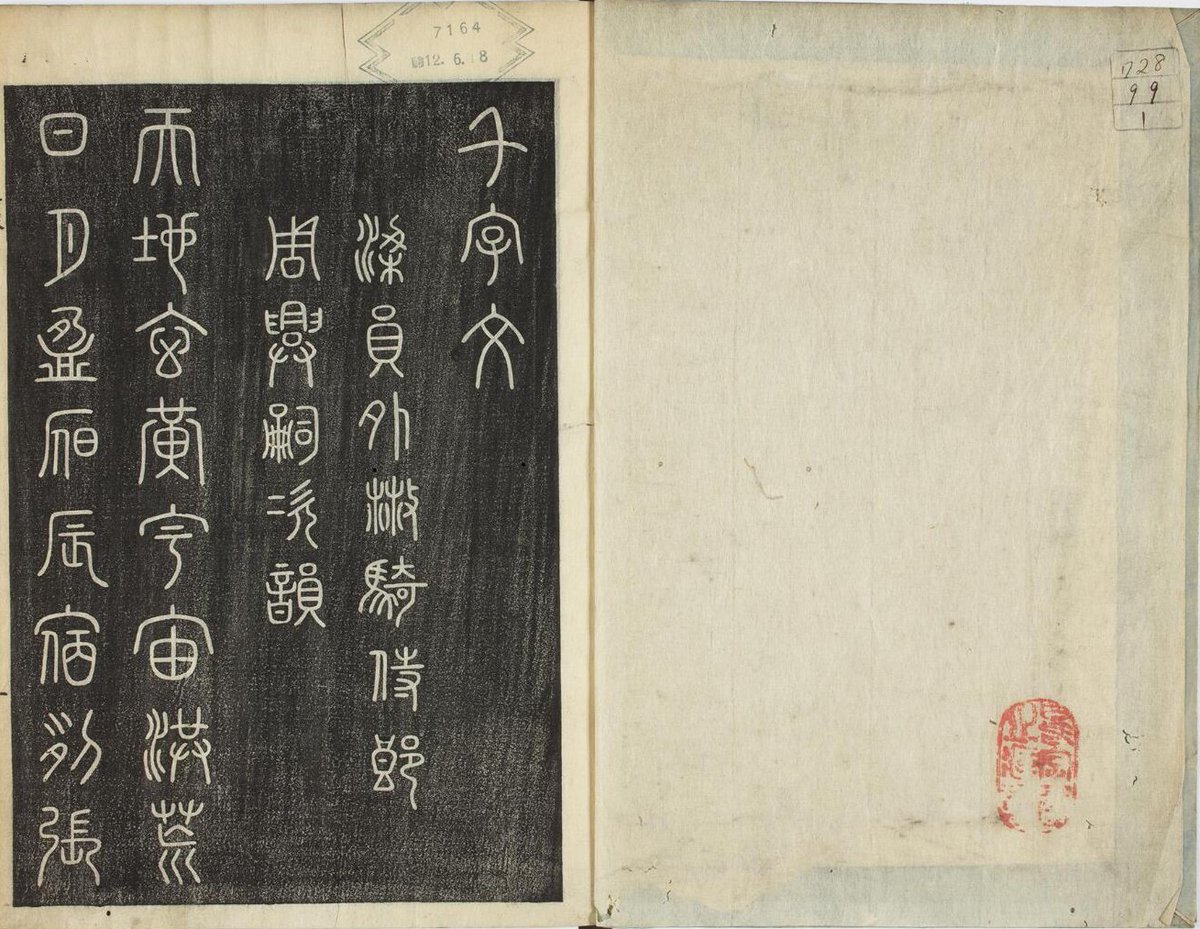 千字文
梁員外散騎侍郎
周興嗣次韻
天地玄黃宇宙洪荒
日月盈昃辰宿列張
7164
12.6.18
728
99
1